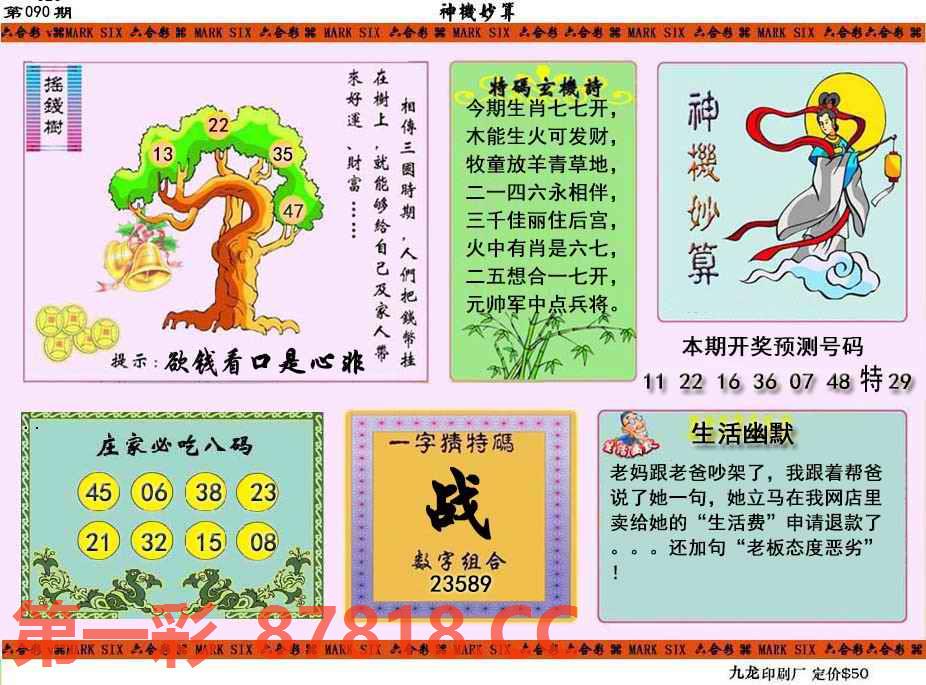 第090期
神機妙算
六合彩 MARK SIX 六合彩 MARK SIX 六合彩 MARK SIX 六合彩 MARK SIX 六合彩 MARK SIX 六合彩 MARK SIX 六合彩 MARK SIX 六合彩
搖錢樹
相傳三國時期,人們把錢幣挂
在樹上,就能够给自己及家人帶
來好運、財富……
22
13
35
47
提示:欲钱看口是心非
特碼玄機詩
今期生肖七七开，
木能生火可发财，
牧童放羊青草地，
二一四六永相伴，
三千佳丽住后宫，
火中有肖是六七，
二五想合一七开，
元帅军中点兵将。
神機妙算
本期开奖预测号码
11 22 16 36 07 48 特29
庄家必吃八码
45 06 38 23
21 32 15 08
一字猜特碼
战
数字组合
23589
生活幽默
生活幽默
老妈跟老爸吵架了，我跟着帮爸
说了她一句，她立马在我网店里
卖给她的“生活费”申请退款了
。。。还加句“老板态度恶劣”
！
第一彩 87818.CC
六合彩 MARK SIX 六合彩 MARK SIX 六合彩 MARK SIX 六合彩 MARK SIX 六合彩 MARK SIX 六合彩 MARK SIX 六合彩 MARK SIX 六合彩
九龙印刷厂 定价$50